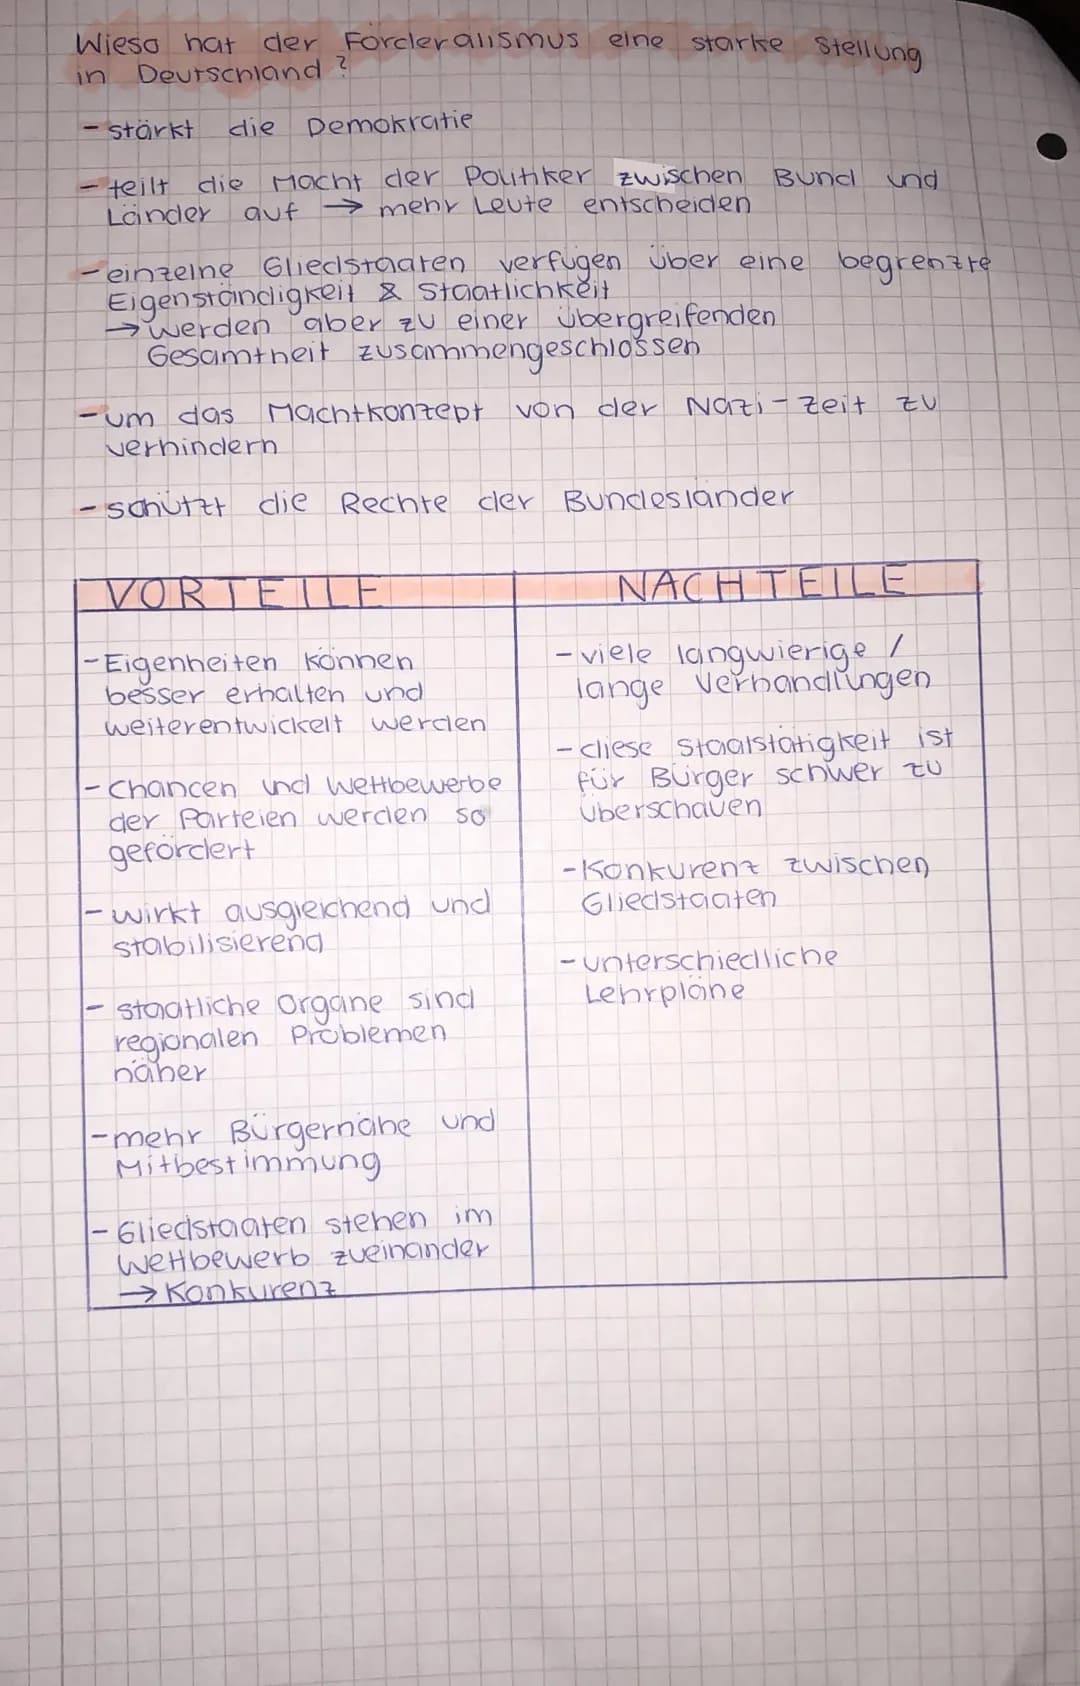 Wieso hat der Förderalismus eine starke Stellung
in Deutschland?
- stärkt die Demokratie
- teilt die Macht der Politiker zwischen Bund und
Länder auf → mehr Leute entscheiden
- einzelne Gliedstaaten verfügen über eine begrenzte
Eigenständigkeit & Staatlichkeit
→ werden aber zu einer übergreifenden
Gesamtheit zusammengeschlossen
- um das Machtkonzept von der Nazi-Zeit zu
verhindern
- schützt die Rechte der Bundesländer
VORTEILE
- Eigenheiten können
besser erhalten und
weiterentwickelt werden
- Chancen und Wettbewerbe
der Parteien werden so
gefördert
- wirkt ausgleichend und
stabilisierend
- staatliche Organe sind
regionalen Problemen
näher
- mehr Bürgernähe und
Mitbestimmung
- Gliedstaaten stehen im
Wettbewerb zueinander
→ Konkurenz
NACHTEILE
- viele langwierige /
lange Verhandlungen
- diese Staatstätigkeit ist
für Bürger schwer zu
überschauen
- Konkurenz zwischen
Gliedstaaten
- unterschiedliche
Lehrpläne